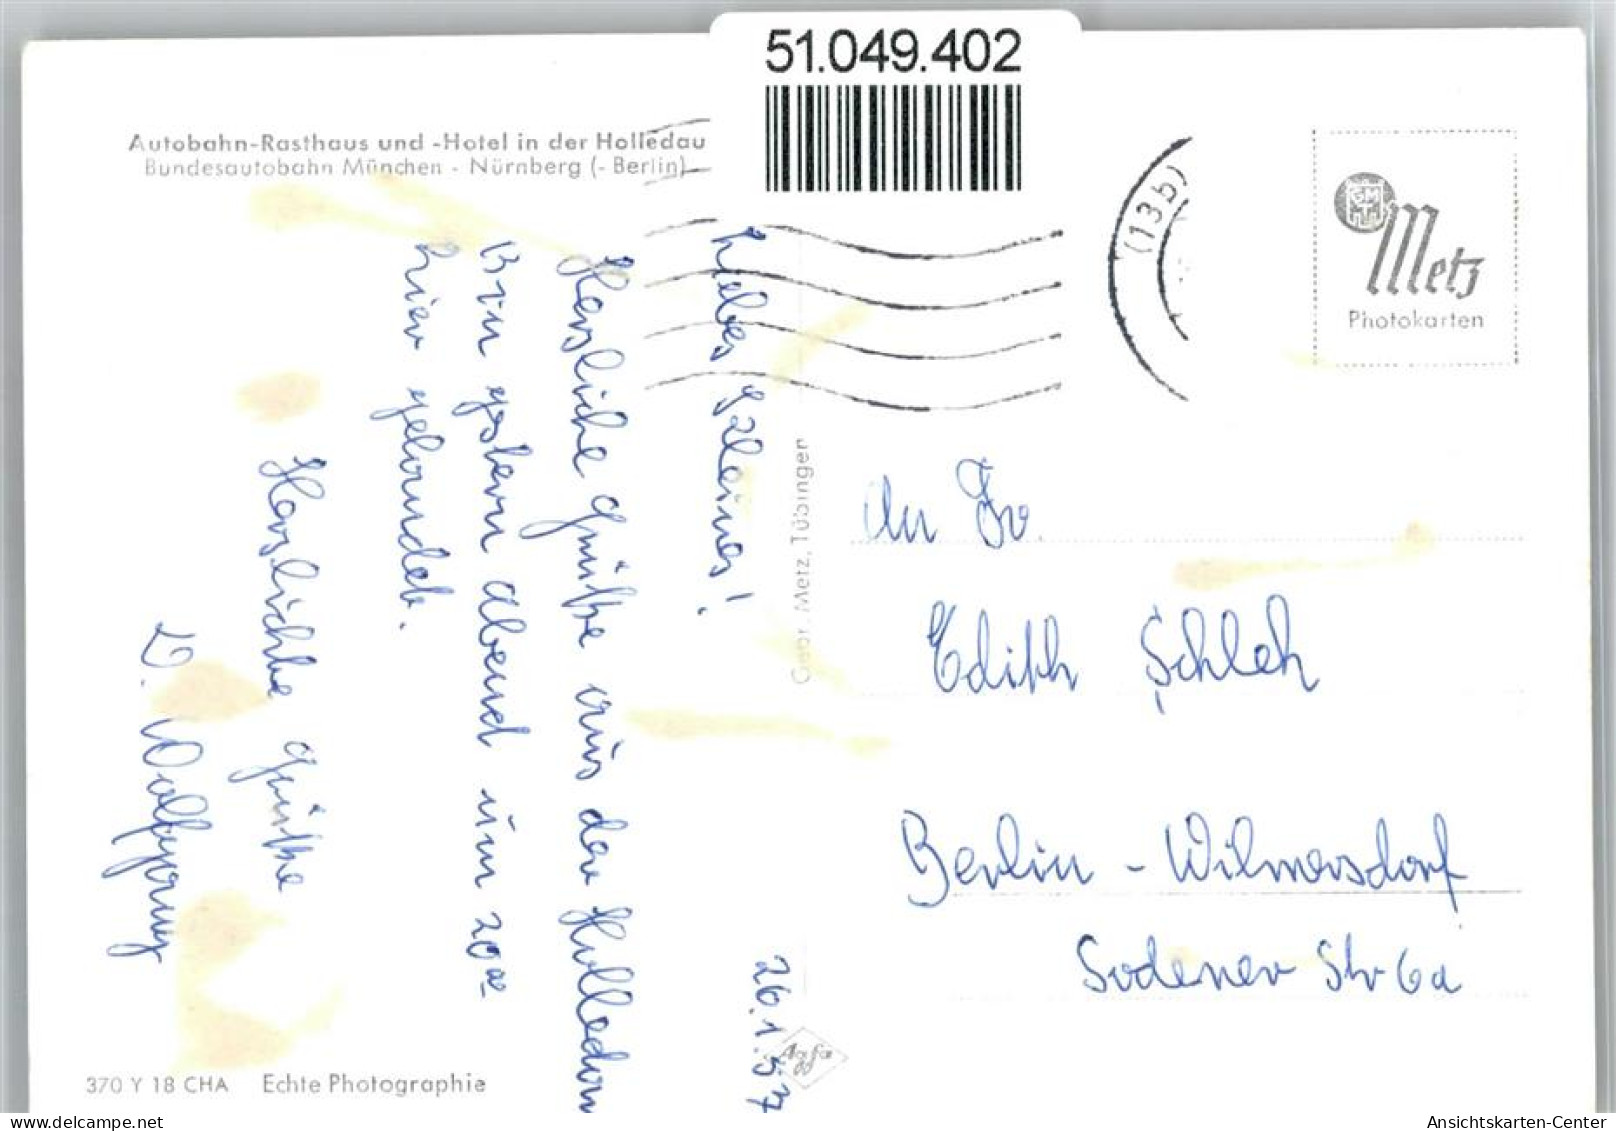 51.049.402
Autobahn-Rasthaus und -Hotel in der Holledau
Bundesautobahn München - Nürnberg (- Berlin)
(13b)
GMT
Metz
Photokarten
26.1.57
Liebes Kleines!
Herzliche Grüße aus der Holledau
Bin gestern abend um 20°°
hier gelandet.
Herzlichste Grüße
D. Wolfgang
Gebr. Metz, Tübingen
An Fr.
Edith Schleh
Berlin - Wilmersdorf
Sodener Str 6a
Agfa
370 Y 18 CHA Echte Photographie
Ansichtskarten-Center